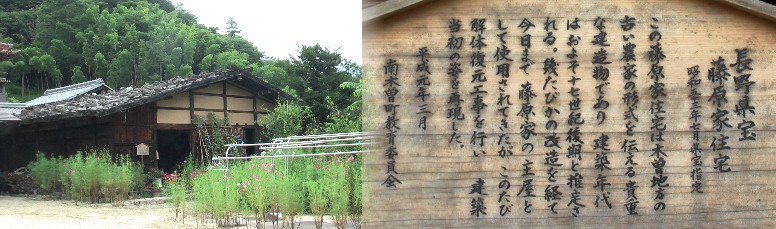 長野県宝
藤原家住宅
昭和三五年七月県宝指定
この藤原家住宅は木曽地方の
古い農家の形式を伝える貴重
な建造物であり　建築年代
はおよそ十七世紀後期と推定さ
れる。幾たびかの改造を経て
今日まで　藤原家の主屋と
して使用されてきたが　このたび
解体復元工事を行い　建築
当初の姿を再現した。
平成元年三月
南木曽町教育委員会